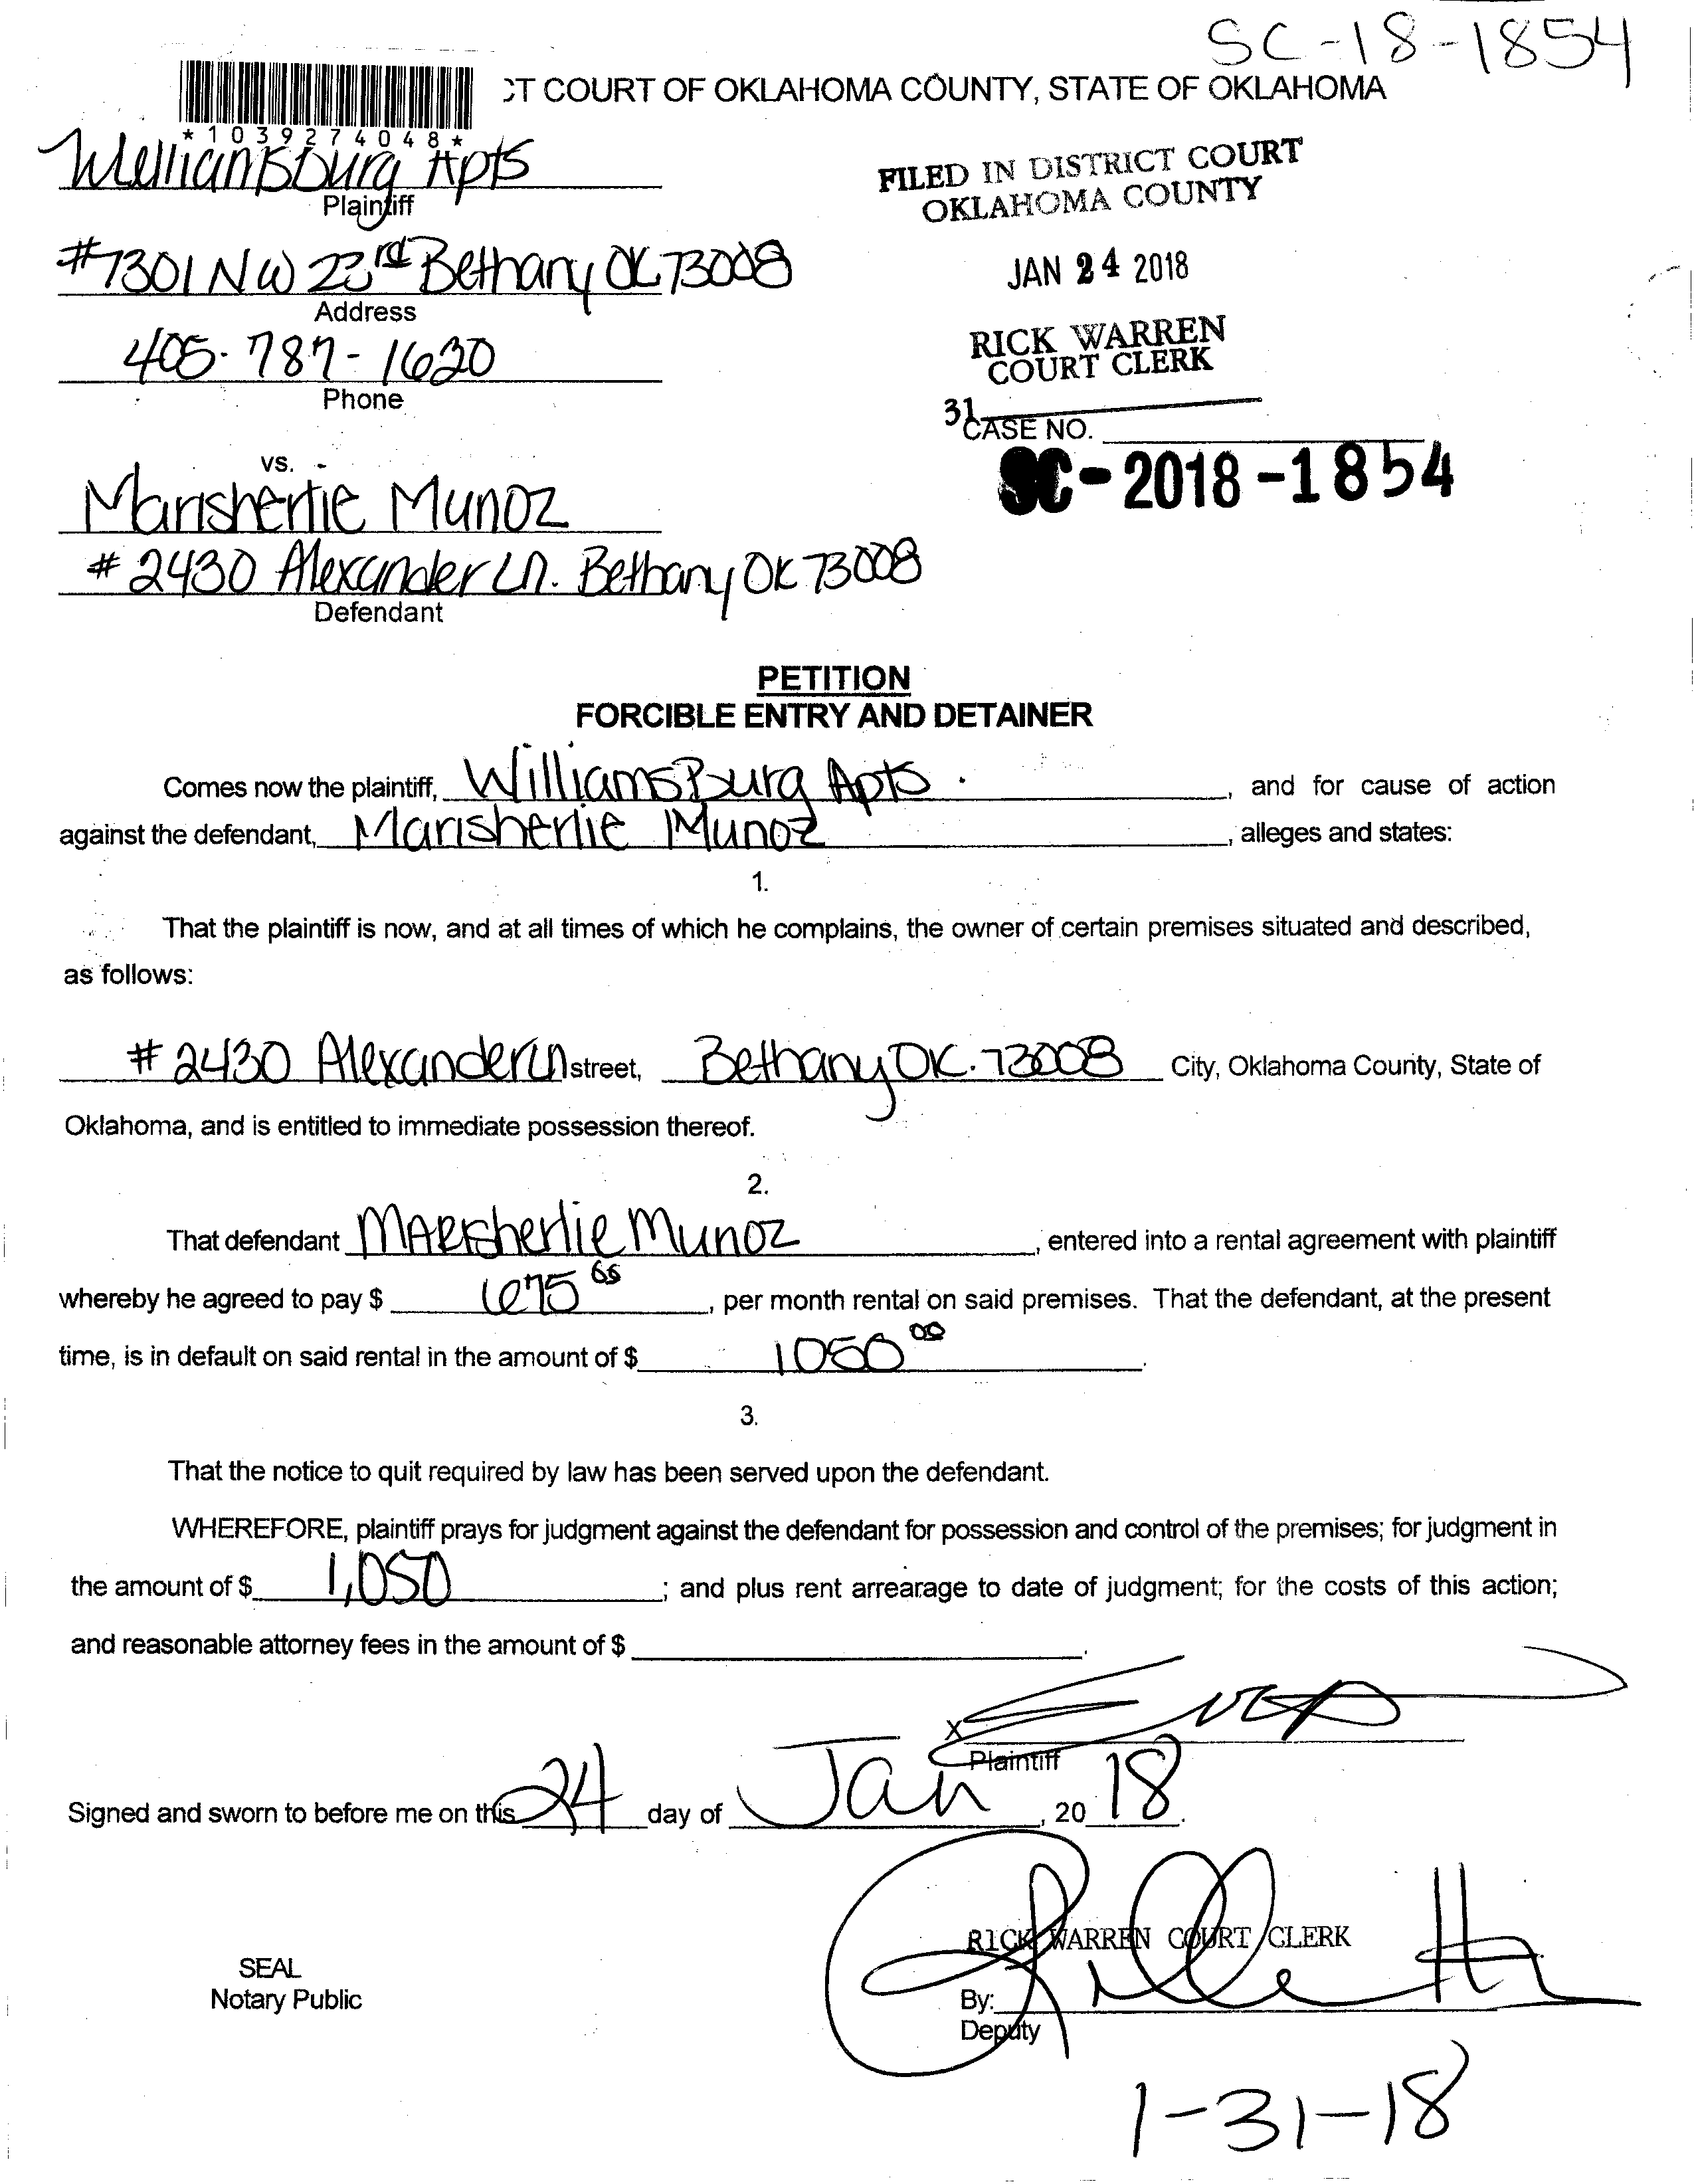 SC-18-1854
CT COURT OF OKLAHOMA COUNTY, STATE OF OKLAHOMA
*1039274048*
Williamsburg Apts
Plaintiff
#7301 NW 23rd Bethany OK 73008
Address
405-787-1620
Phone
FILED IN DISTRICT COURT
OKLAHOMA COUNTY
JAN 24 2018
RICK WARREN
COURT CLERK
31
CASE NO.
SC-2018-1854
vs.
Marisherlie Munoz
#2430 Alexander Ln. Bethany OK 73008
Defendant
PETITION
FORCIBLE ENTRY AND DETAINER
Comes now the plaintiff, WilliamsBurg Apts. , and for cause of action
against the defendant, Marisherlie Munoz , alleges and states:
1.
That the plaintiff is now, and at all times of which he complains, the owner of certain premises situated and described,
as follows:
#2430 Alexander Ln street, Bethany OK. 73008 City, Oklahoma County, State of
Oklahoma, and is entitled to immediate possession thereof.
2.
That defendant MARisherlie Munoz , entered into a rental agreement with plaintiff
whereby he agreed to pay $ 675 , per month rental on said premises. That the defendant, at the present
time, is in default on said rental in the amount of $ 1050 00 .
3.
That the notice to quit required by law has been served upon the defendant.
WHEREFORE, plaintiff prays for judgment against the defendant for possession and control of the premises; for judgment in
the amount of $ 1,050 ; and plus rent arrearage to date of judgment; for the costs of this action;
and reasonable attorney fees in the amount of $ .
X
Plaintiff
Signed and sworn to before me on this 24 day of Jan , 20 18 .
RICK WARREN COURT CLERK
SEAL
Notary Public
By:
Deputy
1-31-18